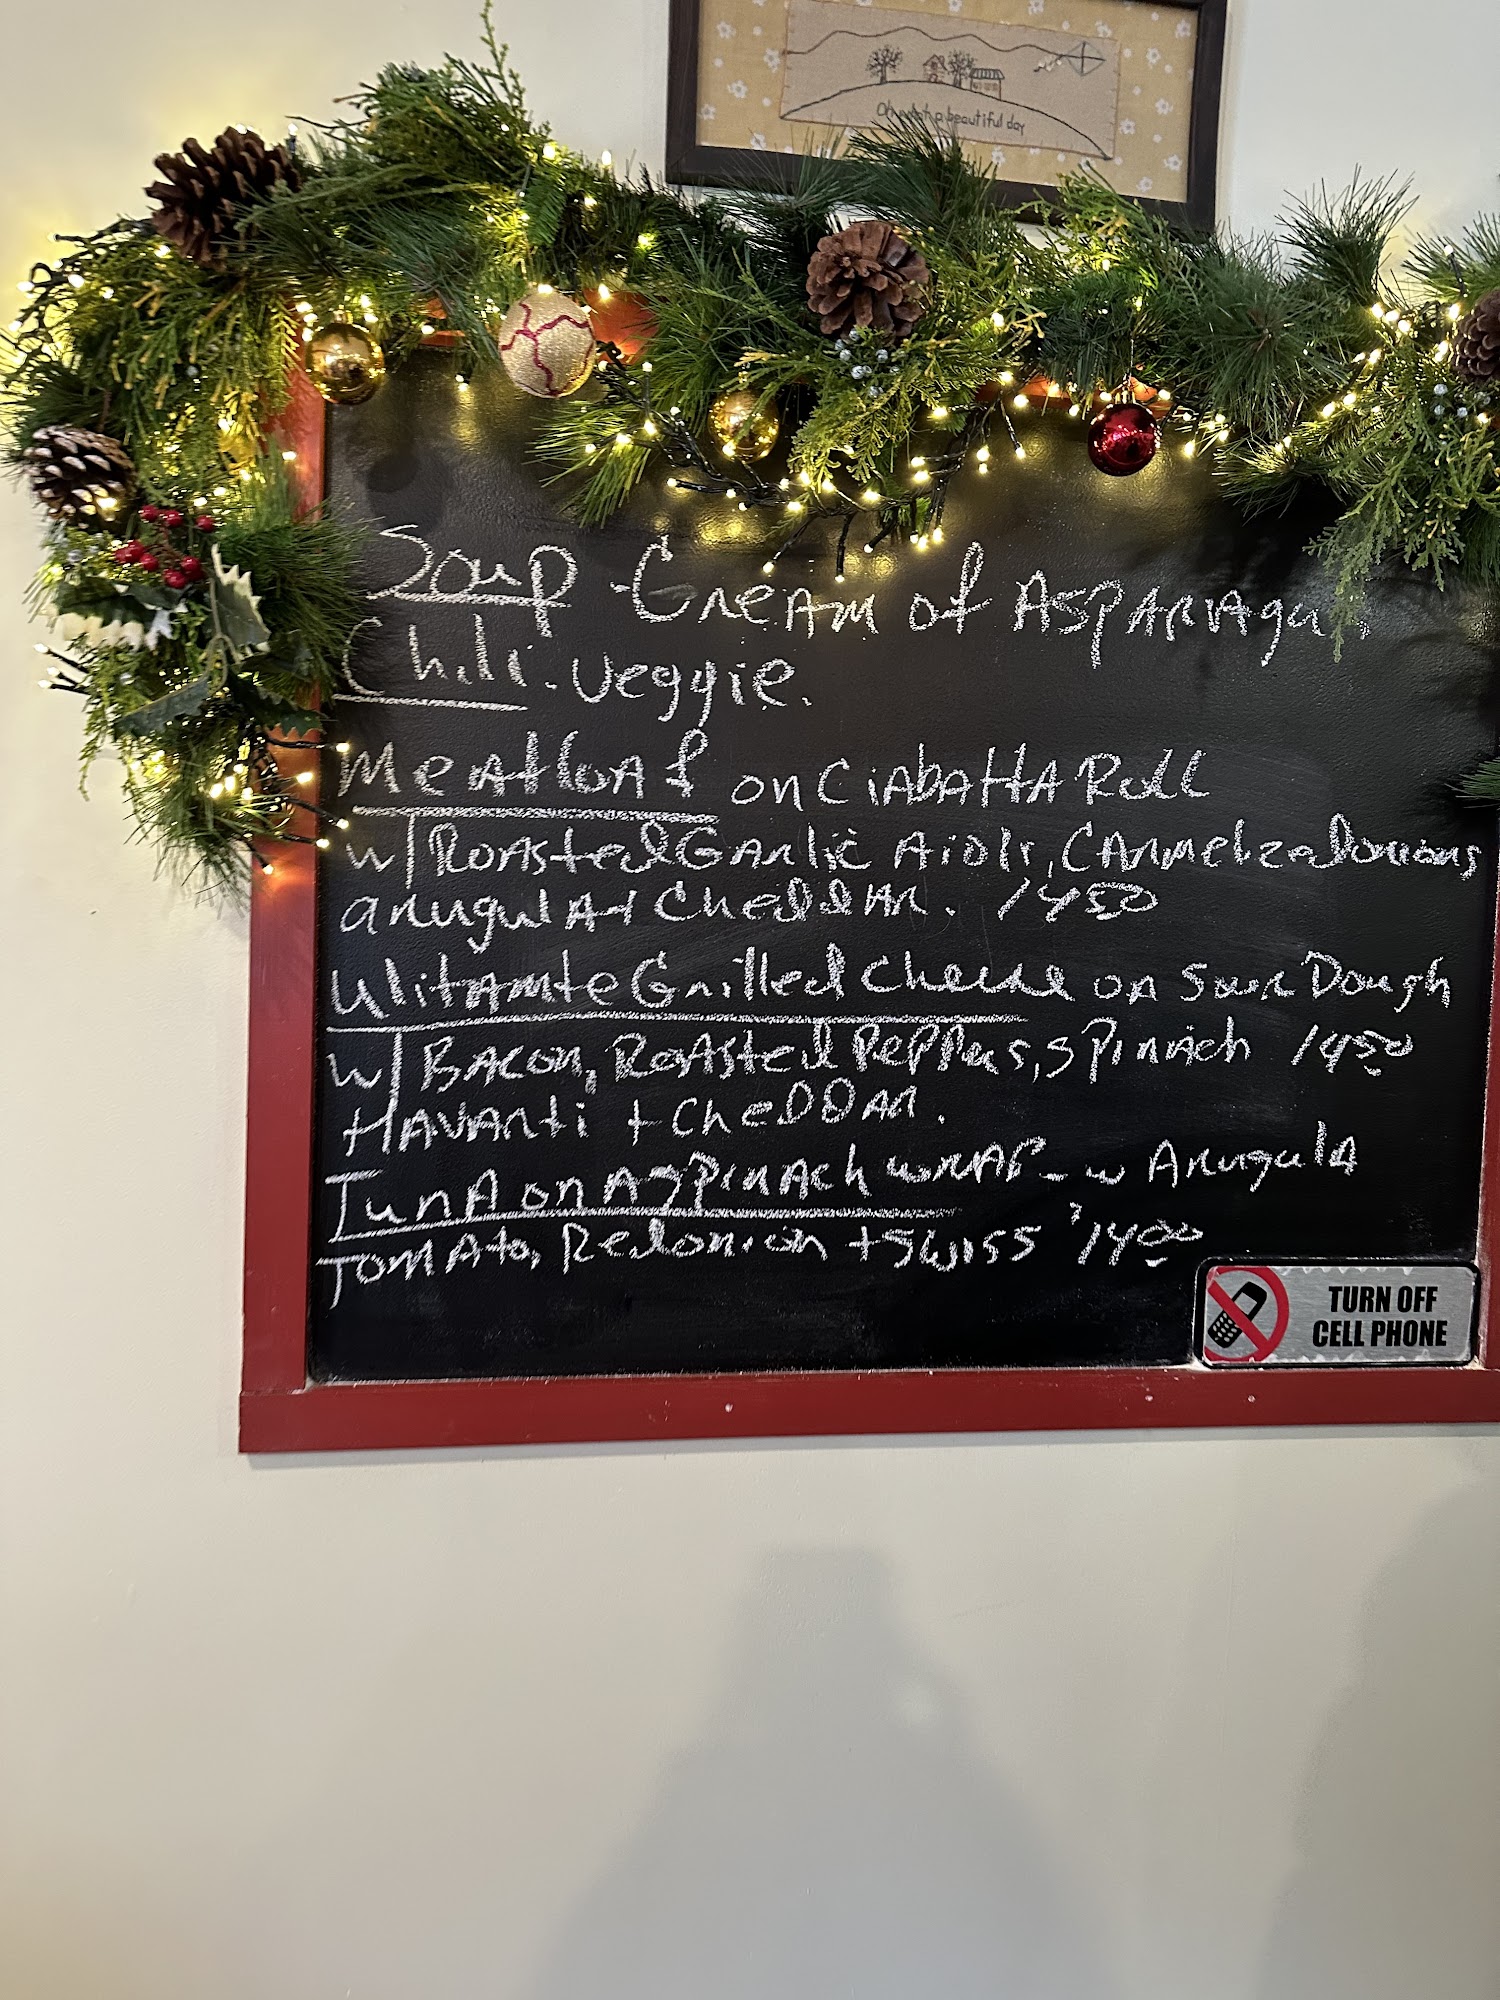 Oh what a beautiful day
Soup - Cream of Asparagu
Chili. veggie.
Meatloaf on Ciabatta Roll
w/ Roasted Garlic Aioli, Carmelized onions
arugula + Cheddar. 1450
Ulitamte Grilled Cheese on Sour Dough
w/ Bacon, Roasted Peppers, spinach 1450
Havarti + Cheddar.
Tuna on a spinach wrap - w Arugula
Tomato, Red onion + Swiss 1400
TURN OFF
CELL PHONE